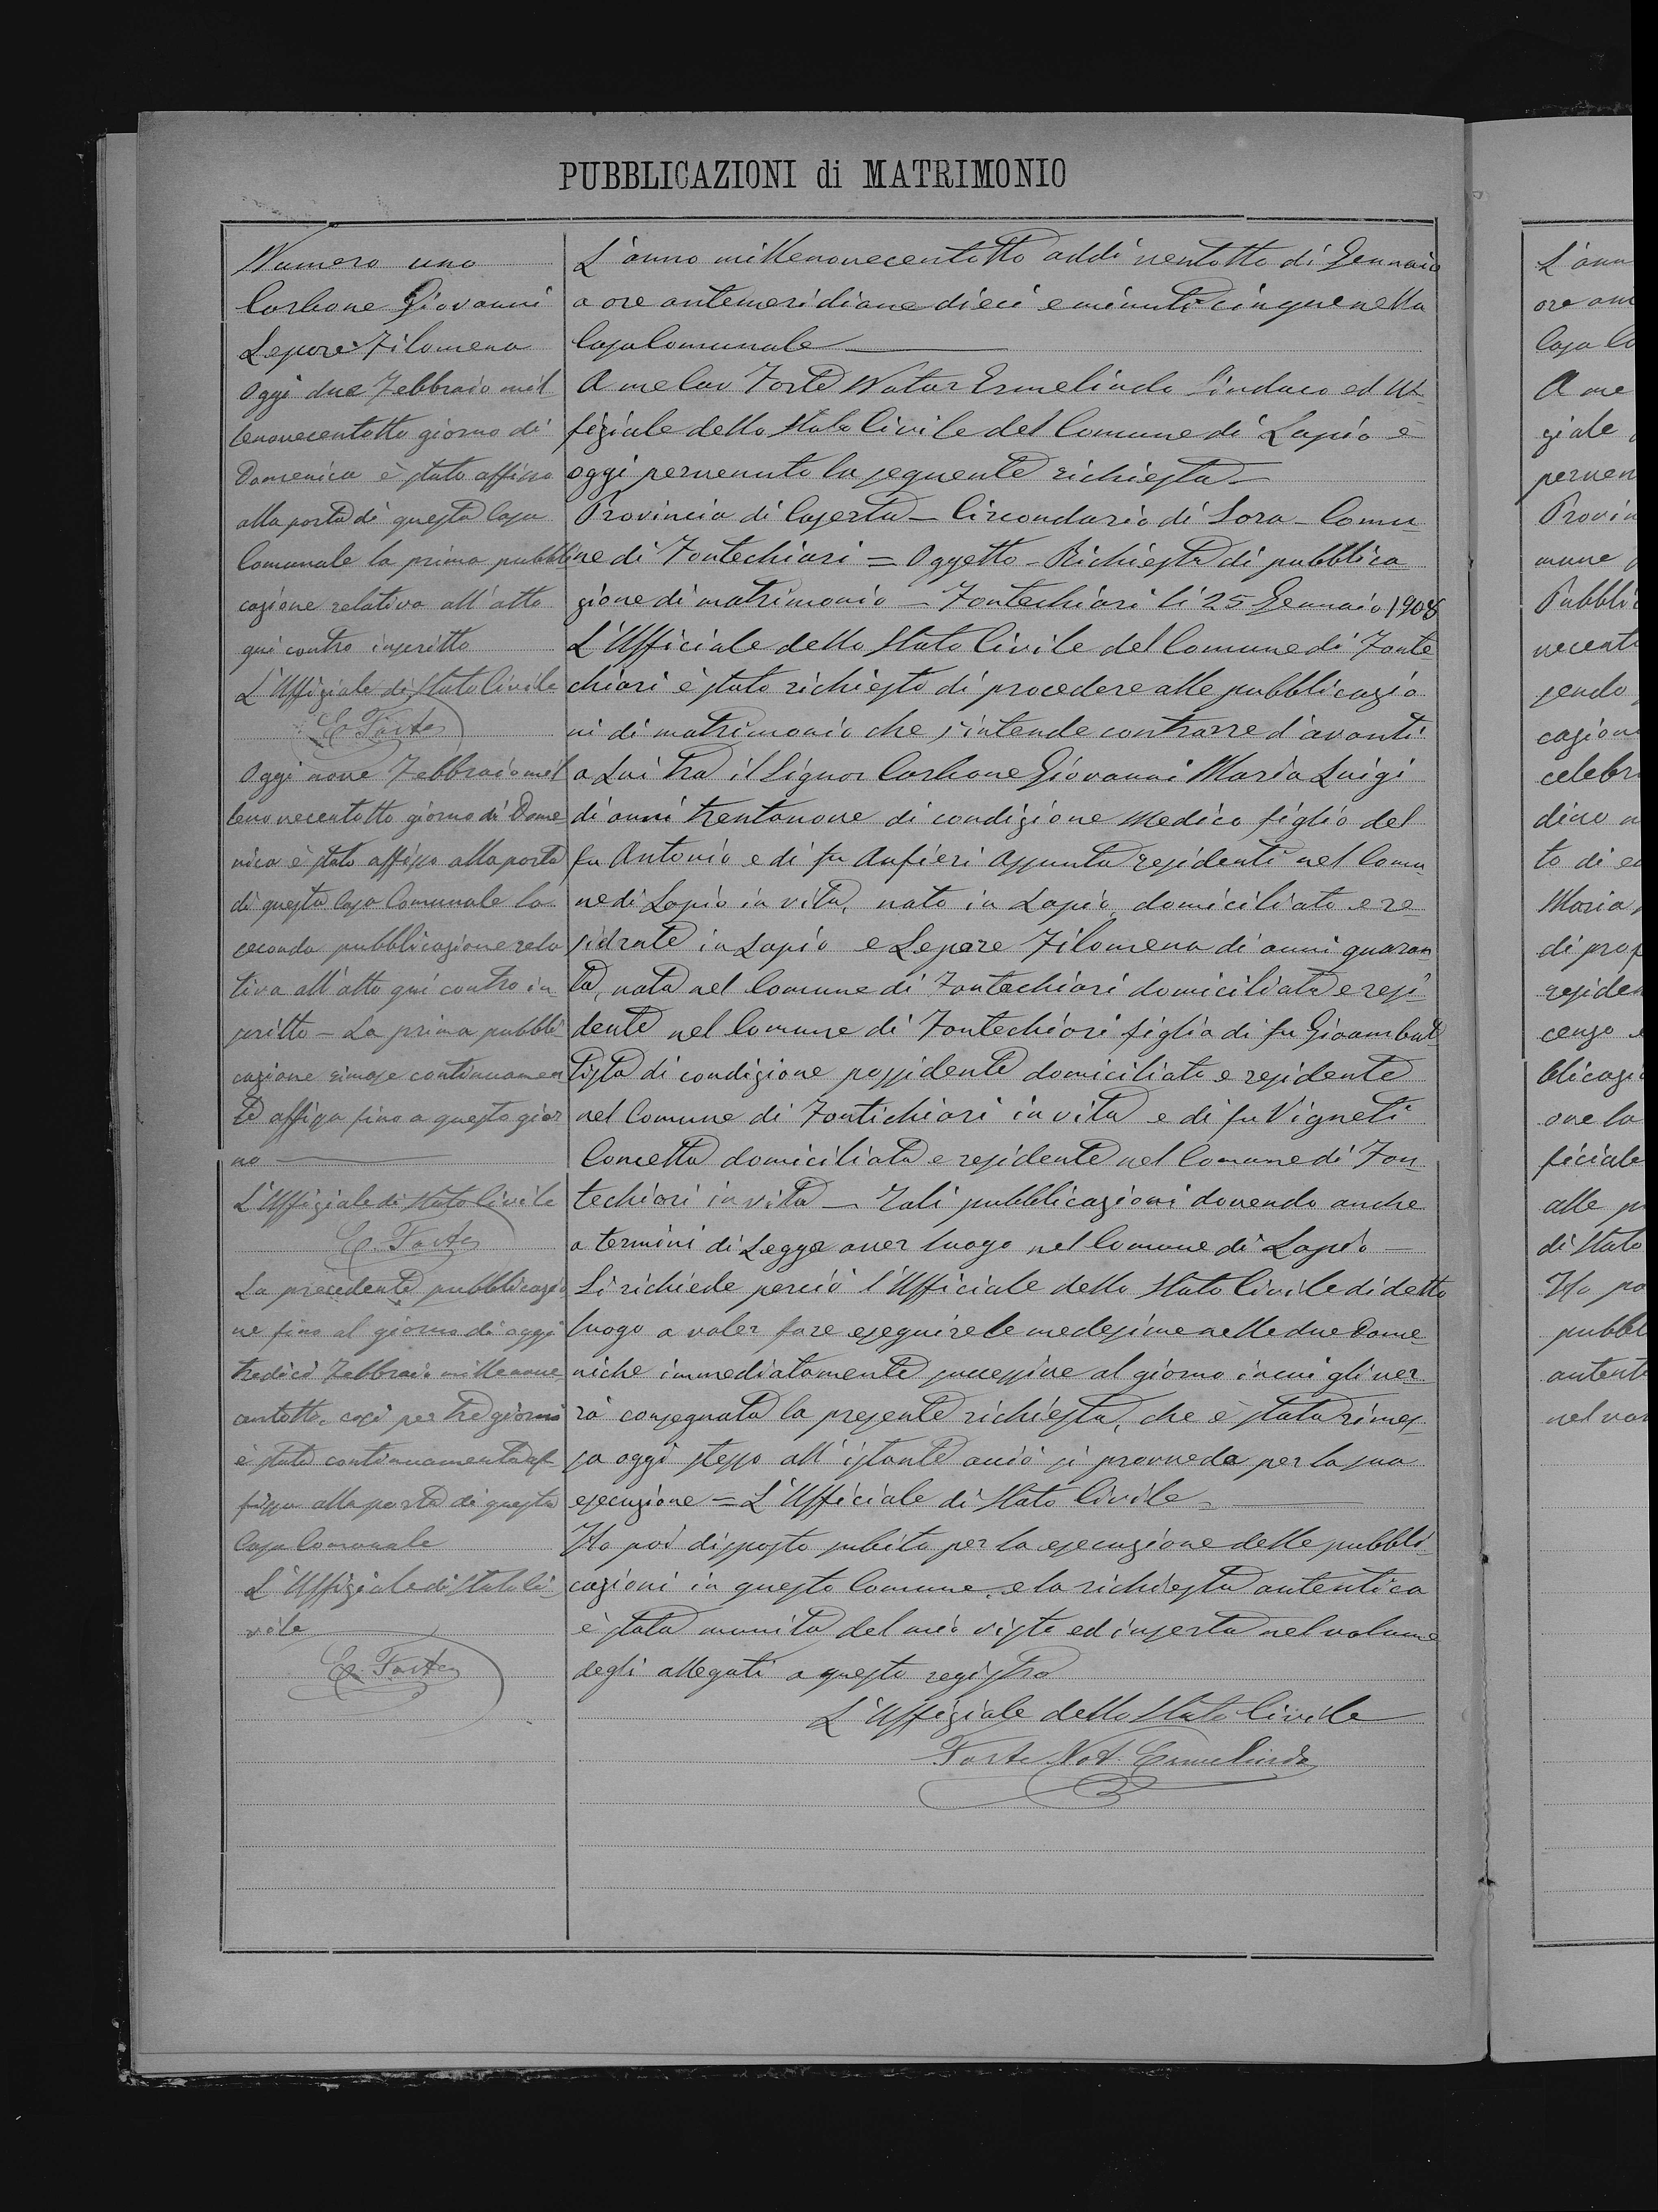 PUBBLICAZIONI di MATRIMONIO
Numero uno
Carbone Giovanni
Lepore Filomena
Oggi due Febbraio mil
lenovecentotto giorno di
Domenica è stato affisso
alla porta di questa Casa
Comunale la prima pubbli
cazione relativa all'atto
qui contro inscritto
L'Uffiziale di Stato Civile
E Forte
Oggi nove Febbraio mil
lenovecentotto giorno di Dome
nica è stato affisso alla porta
di questa Casa Comunale la
seconda pubblicazione rela
tiva all'atto qui contro in-
scritto – La prima pubbli
cazione rimase continuamen
te affissa fino a questo gior
no
L'Uffiziale di Stato Civile
E. Forte
La precedente pubblicazio
ne fino al giorno di oggi
tredici Febbraio millenove
centotto, così per tre giorni
è stata continuamente af-
fissa alla porta di questa
Casa Comunale
L'Uffiziale di Stato Ci
vile
E. Forte
L'anno millenovecentotto addì ventotto di Gennaio
a ore antemeridiane dieci e minuti cinque nella
Casa Comunale
A me Cav Forte Notar Ermelindo Sindaco ed Uf-
fiziale dello Stato Civile del Comune di Lapio è
oggi pervenuto la seguente richiesta –
Provincia di Caserta – Circondario di Sora – Comu-
ne di Fontechiari = Oggetto – Richiesta di pubblica
zione di matrimonio – Fontechiari li 25 Gennaio 1908
L'Ufficiale dello Stato Civile del Comune di Fonte
chiari è stato richiesto di procedere alle pubblicazio
ni di matrimonio che s'intende contrarre d'avanti
a Lui tra il Signor Carbone Giovanni Maria Luigi
di anni trentanove di condizione Medico figlio del
fu Antonio e di fu Anfieri Assunta residenti nel Comu-
ne di Lapio in vita, nato in Lapio, domiciliato e re
sidente in Lapio e Lepore Filomena di anni quaran
ta, nata nel Comune di Fontechiari domiciliata e resi
dente nel Comune di Fontechiari figlia di fu Gioambat
tista di condizione possidente domiciliato e residente
nel Comune di Fontichiari in vita e di fu Vigneti
Concetta domiciliata e residente nel Comune di Fon
techiari in vita – Tali pubblicazioni dovendo anche
a termini di Legge aver luogo nel Comune di Lapio –
Si richiede perciò l'Ufficiale dello Stato Civile di detto
luogo a voler fare eseguire le medesime nelle due Dome
niche immediatamente successive al giorno in cui gli ver
rà consegnata la presente richiesta, che è stata rimes
sa oggi stesso all'istante acciò si provveda per la sua
esecuzione = L'Ufficiale di Stato Civile –
Ho poi disposto subito per la esecuzione delle pubbli
cazioni in questo Comune, e la richiesta autentica
è stata munita del mio visto ed inserta nel volume
degli allegati a questo registro
L'Uffiziale dello Stato Civile
Forte Not. Ermelindo
L'ann
ore an
Casa Co
A me
ziale
perven
Provin
mune
Pubbli
vecent
sendo
cazion
celebr
dino
to di
Maria
di prof
residen
cenzo
blicazi
one la
ficiale
alle p
di Stato
Ho po
pubbl
autent
nel vo